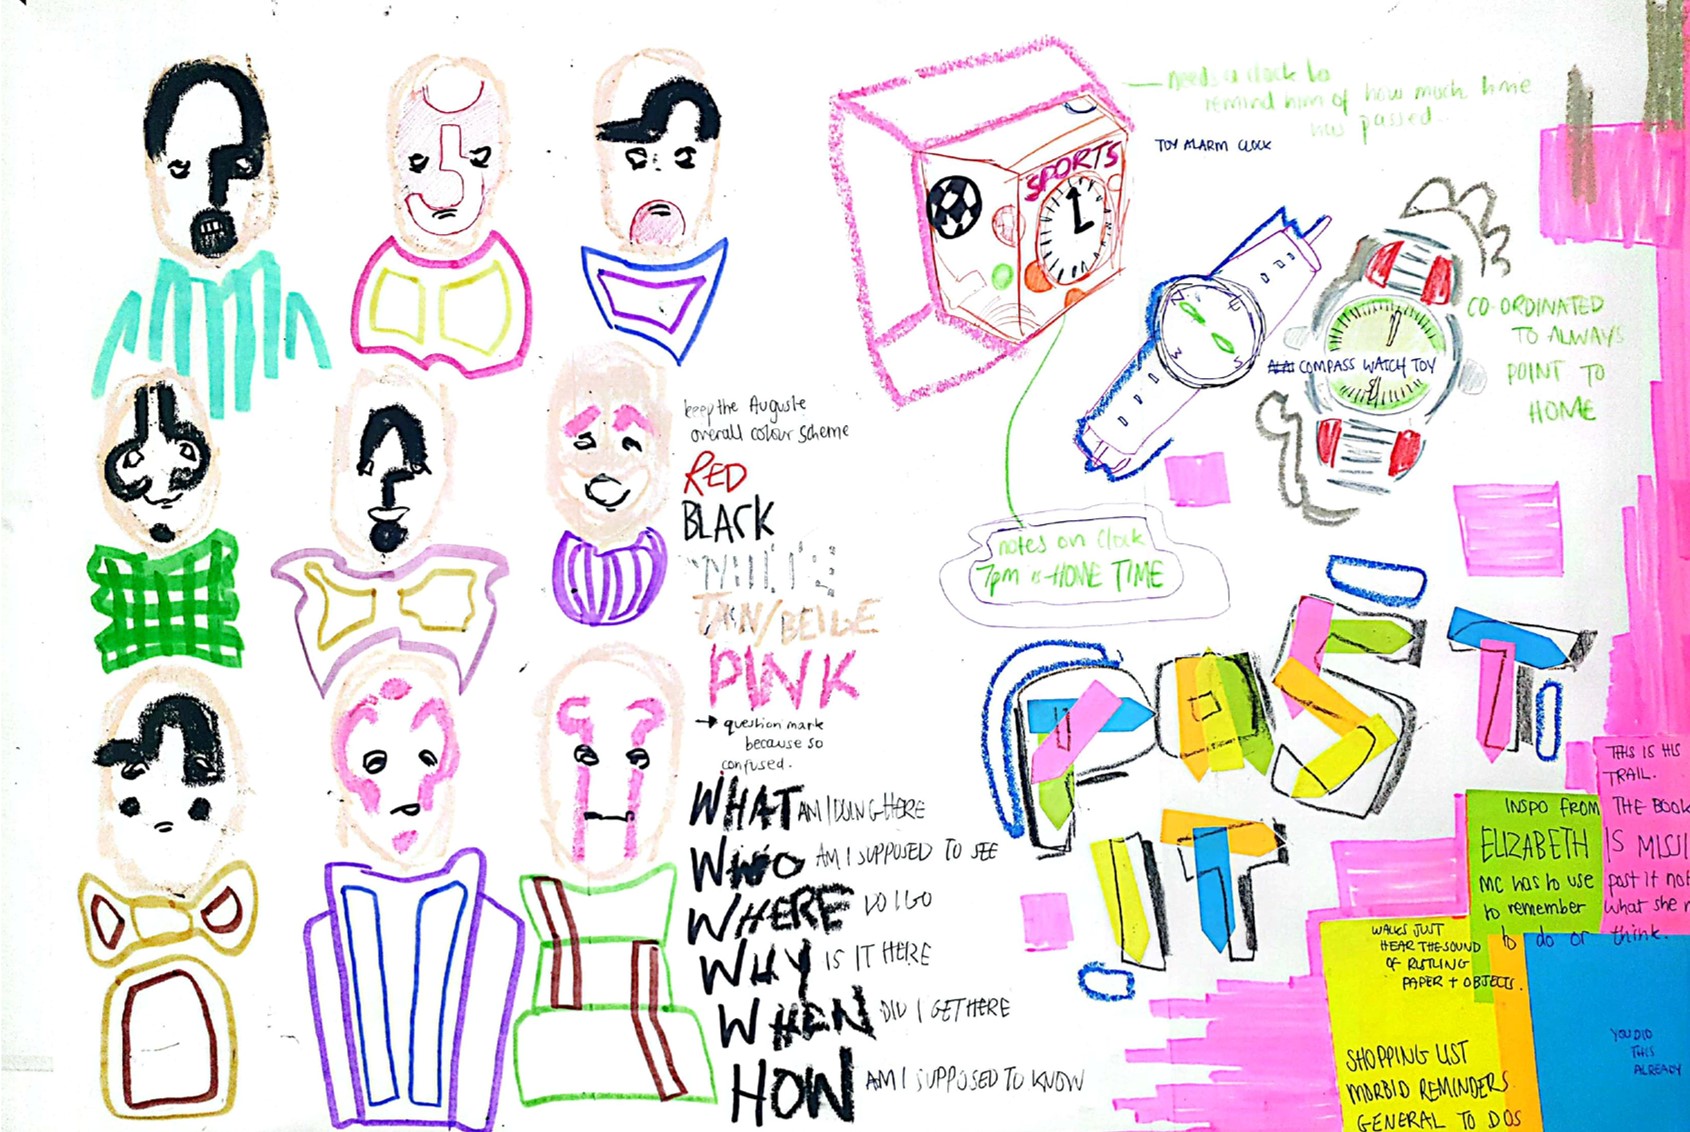 needs a clock to
remind him of how much time
has passed.
TOY ALARM CLOCK
SPORTS
CO-ORDINATED
TO ALWAYS
POINT TO
HOME
COMPASS WATCH TOY
keep the Auguste
overall colour scheme
RED
BLACK
WHITE
TAN/BEIGE
PINK
→ question mark
because so
confused.
WHAT AM I DOING HERE
WHO AM I SUPPOSED TO SEE
WHERE DO I GO
WHY IS IT HERE
WHEN DID I GET HERE
HOW AM I SUPPOSED TO KNOW
notes on clock
7pm is HOME TIME
POST IT
IT
THIS IS HIS
TRAIL.
INSPO FROM THE BOOK
ELIZABETH IS MISSI
MC has to use post it not
to remember what she n
to do or think.
WALKS JUST
HEAR THE SOUND
OF RUSTLING
PAPER + OBJECTS.
SHOPPING LIST
MORBID REMINDERS
GENERAL TO DOS
YOU DID
THIS
ALREADY